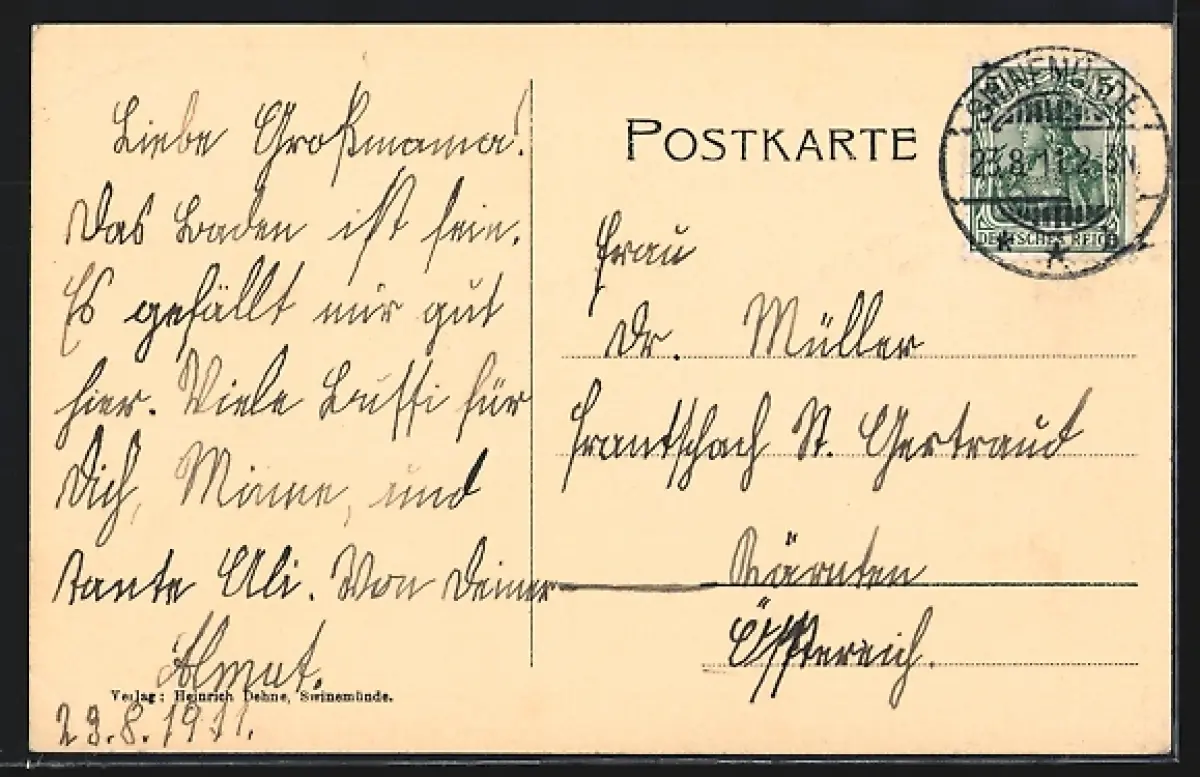 Liebe Großmama!
Das Baden ist fein.
Es gefällt mir gut
hier. Viele Bussi für
Dich, Minne, und
Tante Ali. Von Deiner
Almut.
23.8.1911.
Verlag: Heinrich Dehne, Swinemünde.
POSTKARTE
SWINEMÜNDE
23.8.11.2-3N.
* * b
DEUTSCHES REICH
Frau
Dr. Müller
Frantschach St. Gertraud
Kärnten
Österreich.